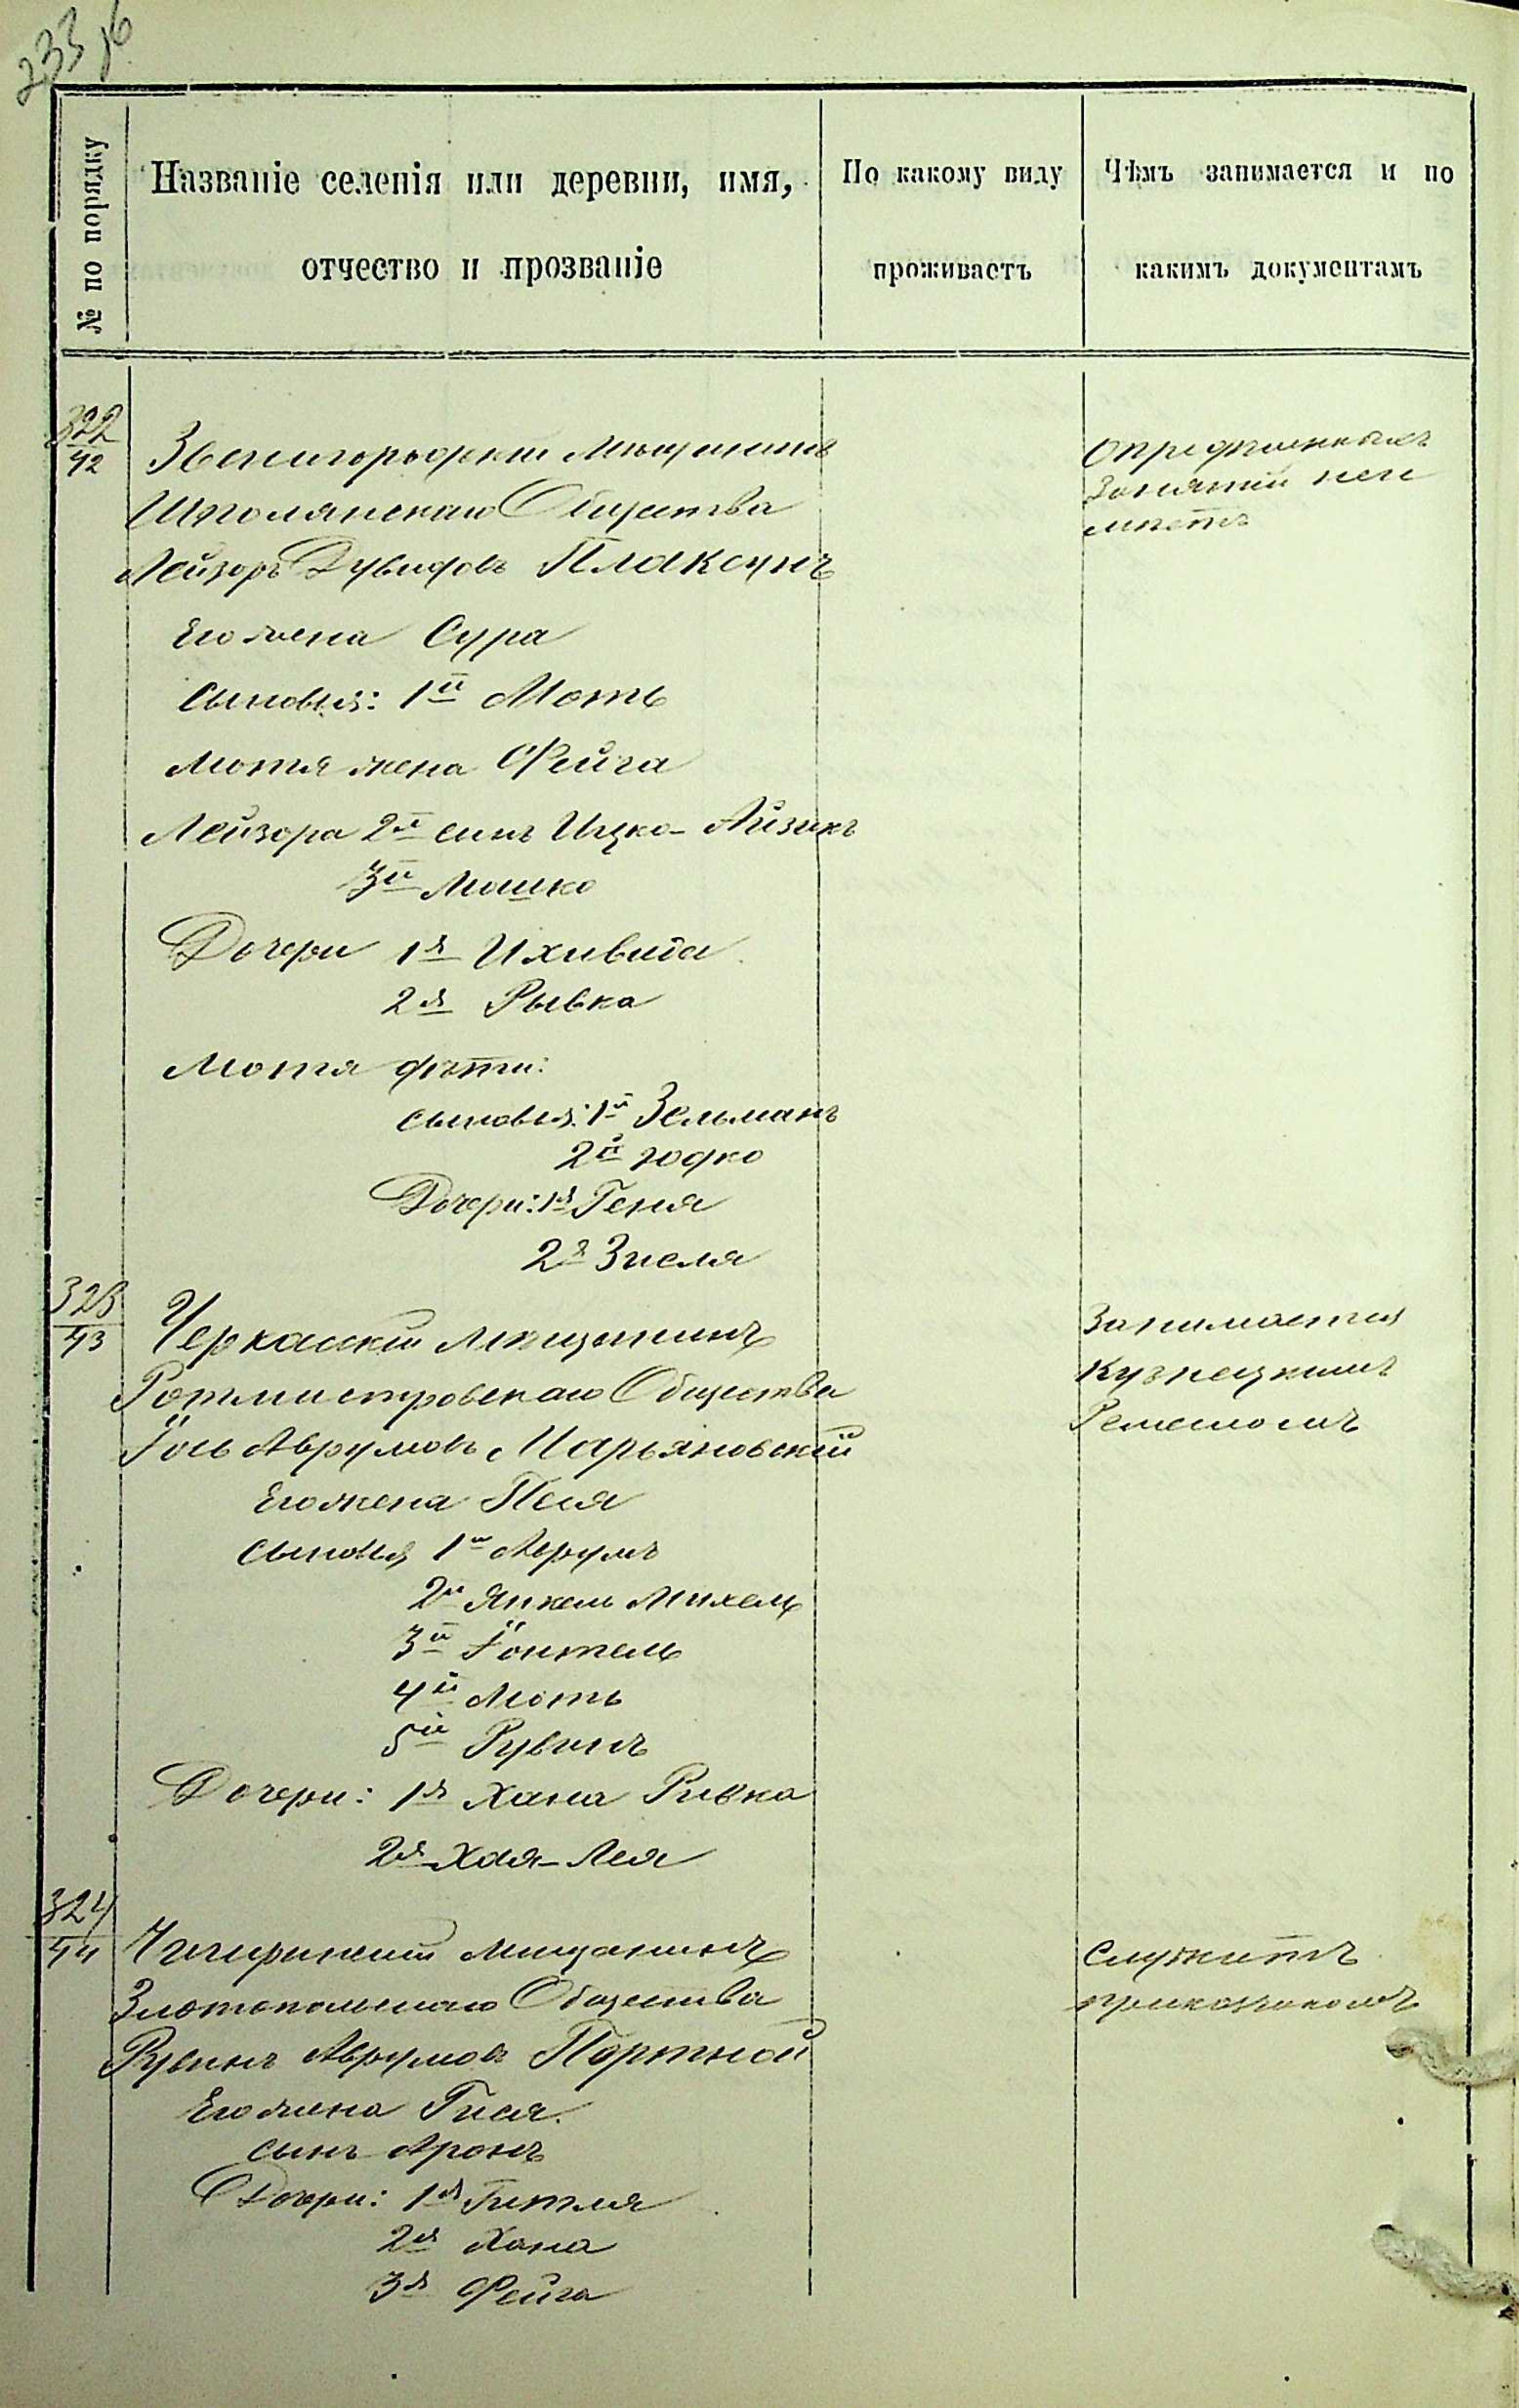 233 об
№ по порядку
Названіе селенія или деревни, имя,
отчество и прозваніе
По какому виду
проживаетъ
Чѣмъ занимается и по
какимъ документамъ
322
42
Звенигородскій Мѣщанинъ
Шполянскаго Общества
Лейзоръ Дувидовъ Плаксунъ
Его жена Сура
Сыновья: 1й Моть
Мотя жена Фейга
Лейзора 2й сынъ Ицко-Айзикъ
3й Мошко
Дочери 1я Ихивита
2я Рывка
Мотя дѣти:
сыновья: 1й Зельманъ
2й Юдко
Дочери: 1я Геня
2я Зисля
Опредѣленныхъ
Занятій неи
мѣетъ
323
43
Черкаскій мѣщанинъ
Ротмистровскаго Общества
Іось Аврумовъ Марьяновскій
Его жена Песя
Сыновья 1й Аврумъ
2й Янкель Михель
3й Іонтель
4й Моть
5й Рувинъ
Дочери: 1я Хана Ривка
2я Хая-Лея
Занимается
Кузнецкимъ
Ремесломъ
324
44
Чигиринскій мищанинъ
Златопольскаго Общества
Рувинъ Аврумовъ Портной
Его жена Гися
сынъ Аронъ
Дочери: 1я Гитля
2я Хана
3я Фейга
Служитъ
приказчикомъ